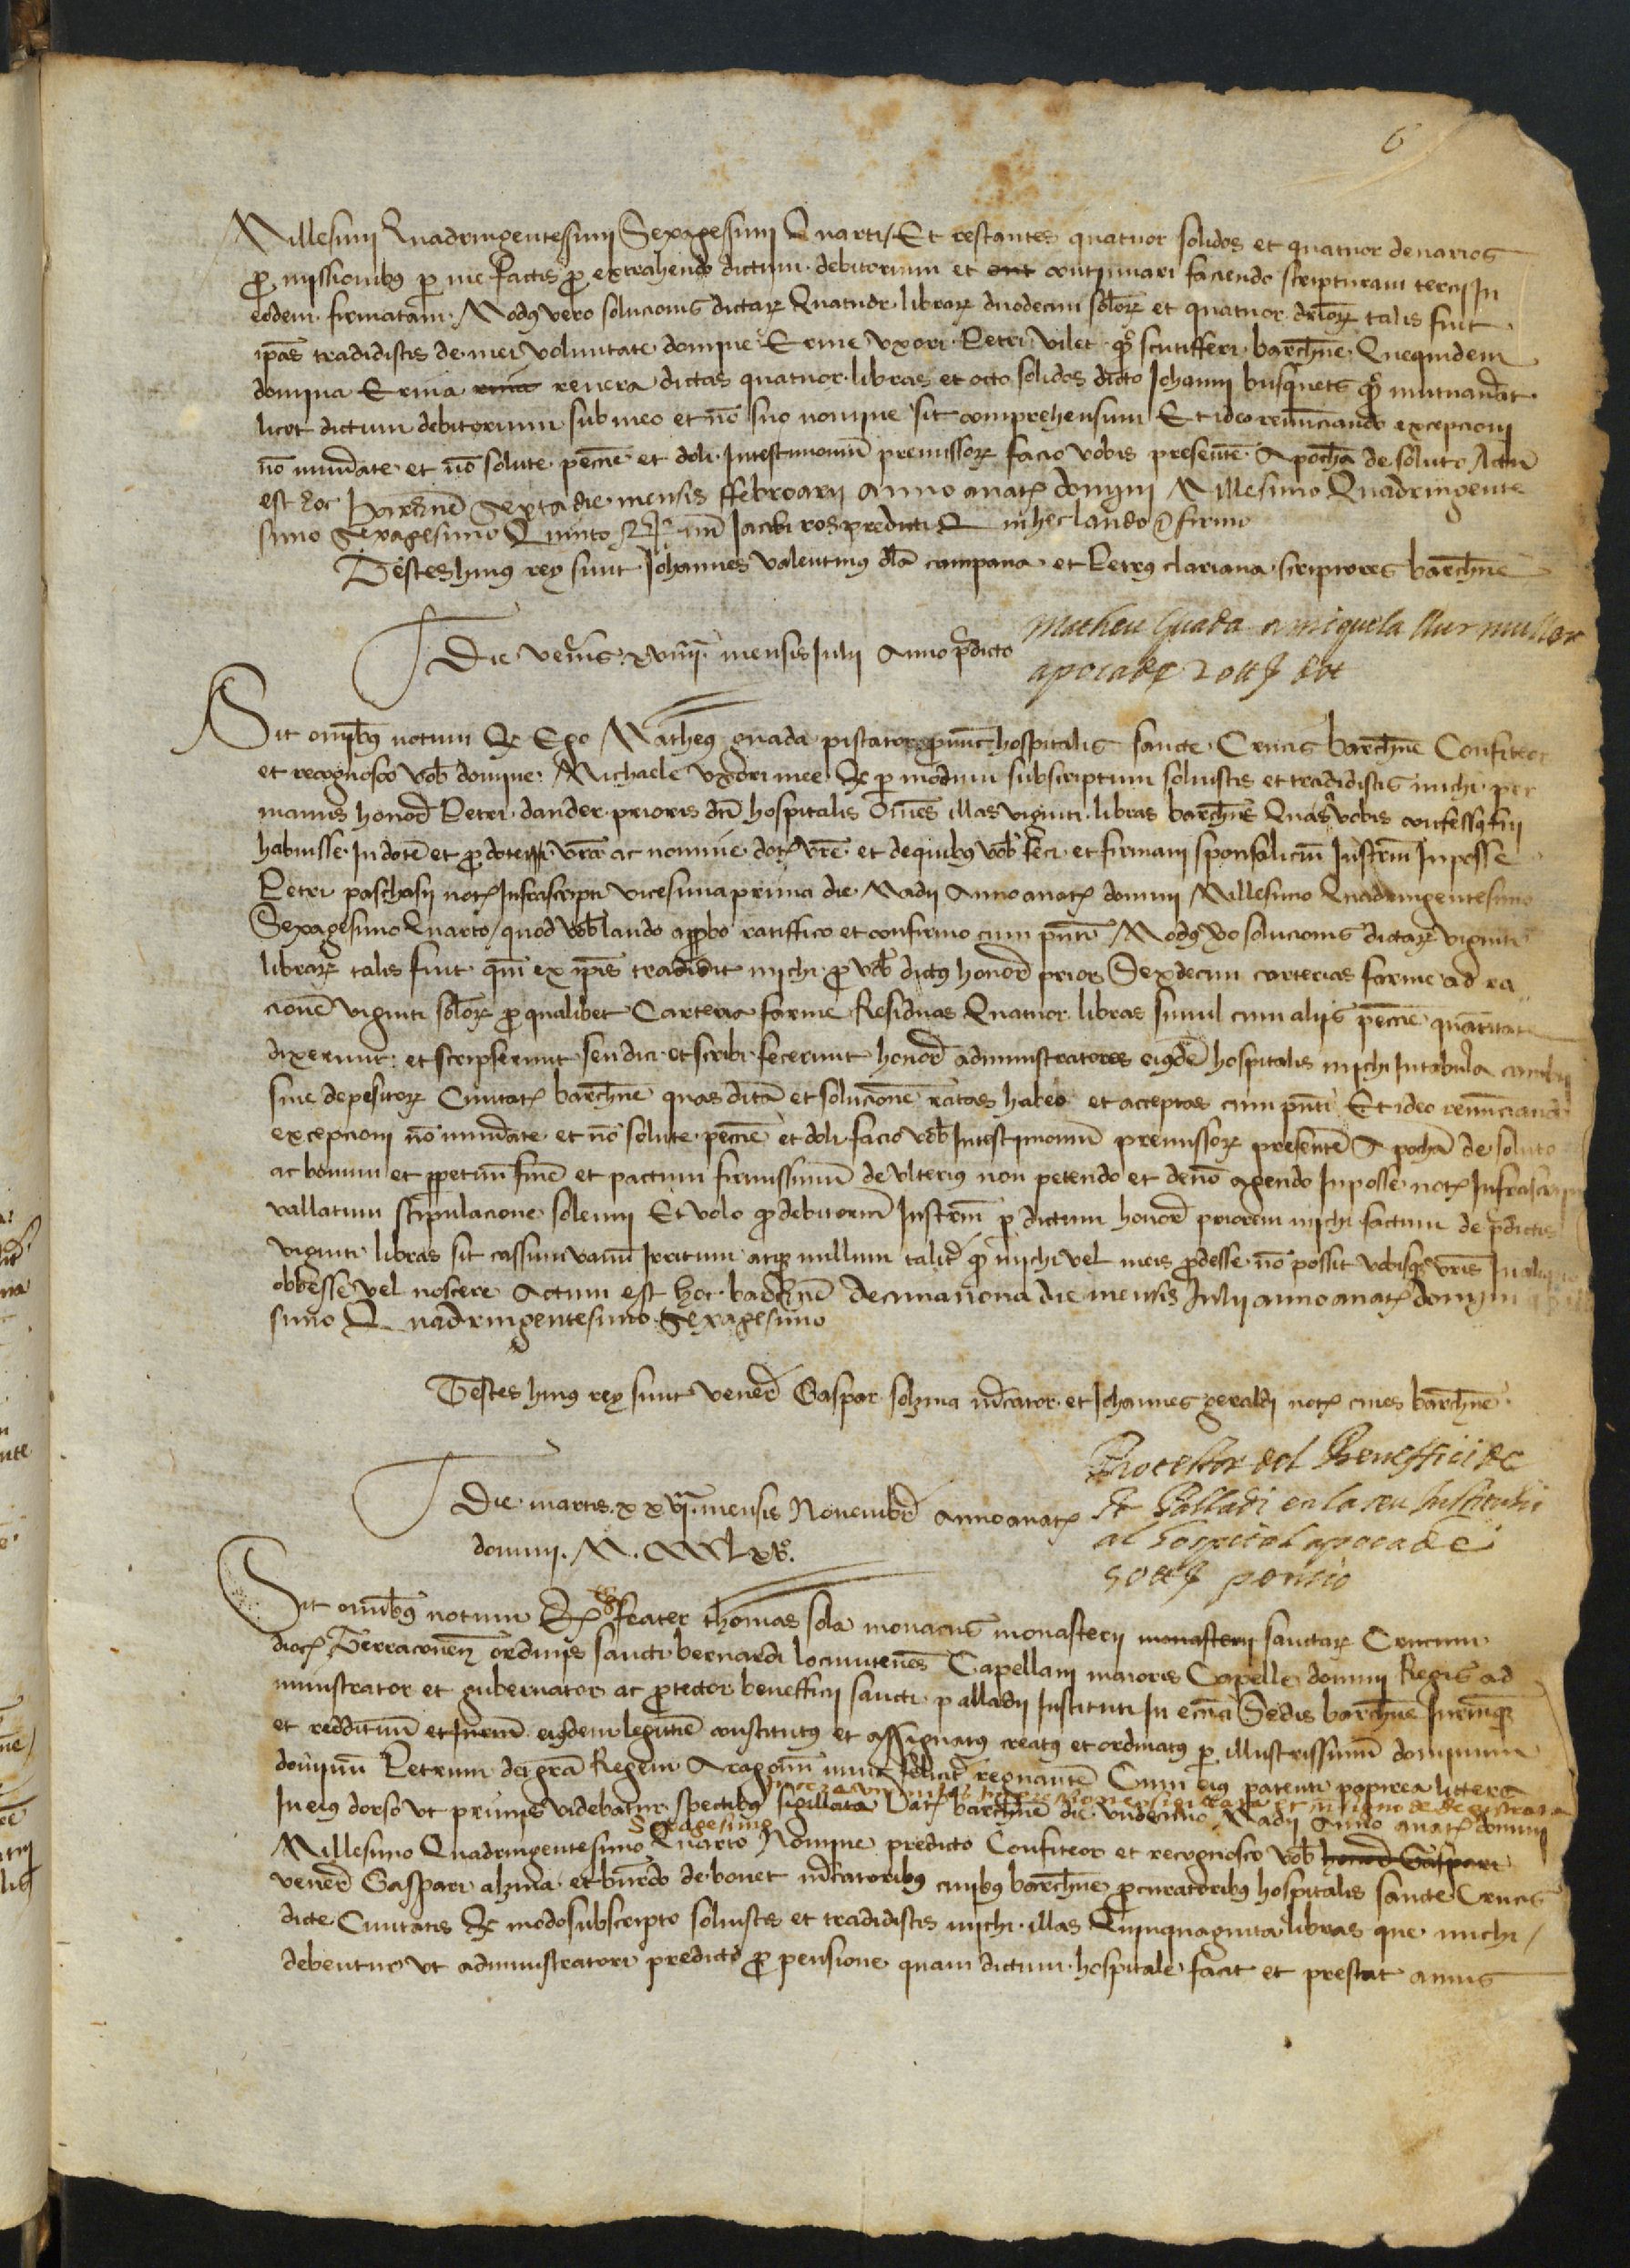 6
Millesimi Quadringentessimi Sexagessimi Quarti / Et restantes quatuor solidos et quatuor denarios
ꝓ missionibꝰ ꝑ me factis ꝓ extrahendo dictum debitorium et cont continuari faciendo scripturam tercii In
eodem firmatam. Modꝰ vero solucionis dictaꝝ Quatuor libraꝝ duodecim solidoꝝ et quatuor denarioꝝ talis fuit
ip̄as tradidistis de mei voluntate domine Erine uxori Petri vilet qͦ scutifferi barchn̄e Quequidem
domina Erina revera dictas quatuor libras et octo solidos dicto Johanni busquets qͦ mutuaverat
licet dictum debitorium sub meo et nō suo nomine sit comprehensum Et ideo renūciando excepcioni
nō numerate et nō solute pecc̄ie et doli Intestimoniū premissoꝝ facio vobis presentē Apocham de soluto Actū
est hoc Barchn̄e sexta die mensis ffebroarii anno a natꝭ domini Millesimo Quadringente
simo Sexagesimo Quinto Sig num Jacobi ros predicti Q in hec laudo & firmo
Testes huiꝰ rey sunt Johannes valentinꝰ als̄ campana et Petrꝰ clariana scriptores barchn̄e
Die veneris xviiij mensis Julii Anno p̄dicto
Matheu Guada a miquela sur muller
apoca de 20 ℔ dot
Sit omībꝰ notum Q Ego Matheꝰ guada pistator ꝓ nunc hospitalis sancte Crucis barchn̄e Confiteor
et recognosco vob̄ domine Michaele uxori mee Q ꝑ modum subscriptum solvistis et tradidistis michi per
manus honor̄ Petri dander prioris dc̄i hospitalis Om̄es illas viginti libras barchn̄e Quas vobis confessꝰ fui
habuisse In dotē et ꝓ dote vr̄a ac nomine dotꝭ vr̄e et de quibꝰ vob̄ feci et firmavi sponsaliciū Instrm̄ In posse
Petri paschasii notꝭ Infrascripti vicesima prima die Madii Anno a natꝭ domini Millesimo Quadringentesimo
Sexagesimo Quarto / quod vob̄ laudo aꝓbo ratiffico et confirmo cum pn̄ti Modꝰ vo solucionis dictaꝝ viginti
libraꝝ talis fuit qm̄ ex ip̄is tradidit michi ꝓ vob̄ dictꝰ honor̄ prior Sexdecim carterias farine ad ra
cionē viginti solidoꝝ ꝓ qualibet Carteria farine Residuas Quatuor libras simul cum aliis pecc̄ie quantitate
dixerunt et scripserunt seu dici et scribi fecerunt honor̄ administratores eiꝰdē hospitalis michi In tabula cambii
sive depositoꝝ Civitatꝭ barchn̄e quas ditā et solucionē ratas habeo et acceptas cum pn̄ti Et ideo renūciando
excepcioni nō numerate et nō solute pecc̄ie et doli facio vob̄ Intestimoniū premissoꝝ presentē Apocham de soluto
ac bonum et ꝑpetuū finē et pactum firmissimū de ulterius non petendo et de nō agendo In posse notꝭ Infrascripti
vallatum stipulacione solemni Et volo ꝙ debitoriū Instrm̄ ꝑ dictum honor̄ priorem michi factum de p̄dictis
viginti libras sit cassum vanū Irritum atqꝫ nullum taliter qꝫ michi vel meis ꝓdesse nō possit vobisqꝫ vr̄is In aliquo
obbesse vel noscere Actum est hoc barchn̄e decima nona die mensis Julii anno a natꝭ domini
simo Quadringentesimo Sexagesimo
Testes huiꝰ rey sunt vener̄ Gaspar solzina mercator et Johannes geraldi notꝭ cives barchn̄e
Die martis xxvi mensis Novembr̄ Anno a natꝭ
domini M CCCCLxvͦ
Protector del Beneffici de
St Palladi en la seu Instituhit
al hospital apoca de
50 ℔ pensio
Sit omībꝰ notum Q Ego frater thomas sola monacus monasterii monasterii sanctaꝝ Crucum
diocꝭ Terraconen̄ ordinis sancti bernardi locumtenēs Capellani maioris Capelle domini Regis ad
ministrator et gubernator ac ꝓtector beneffici sancti palladii Instituti In ecc̄ia Sedis barchn̄e
et reddituū et eiꝰdem legitime constitutꝰ et assignatꝰ creatꝰ et ordinatꝰ ꝑ illustrissimū dominum
dominū Petrum dei grā Regem Aragonū nunc feliciter regnantē Cum eiꝰ patenti papirea littera
In eiꝰ dorso ut primis videbatur spectibꝰ sigillata Datꝭ barchn̄e die undecimo Madii Anno a natꝭ domini
Sexagesimo
Millesimo Quadringentesimo Quarto Nomine predicto Confiteor et recognosco vob̄ honor̄ Gaspari
vener̄ Gaspari alzina et burdo de bonet mercatoribꝰ civibꝰ barchn̄e ꝓcuratoribꝰ hospitalis sancte Crucis
dicte Civitatis Q modo subscripto solvistis et tradidistis michi illas Quinquaginta libras que michi /
debentur ut administratori predicto ꝓ pensione quam dictum hospitale facit et prestat annis